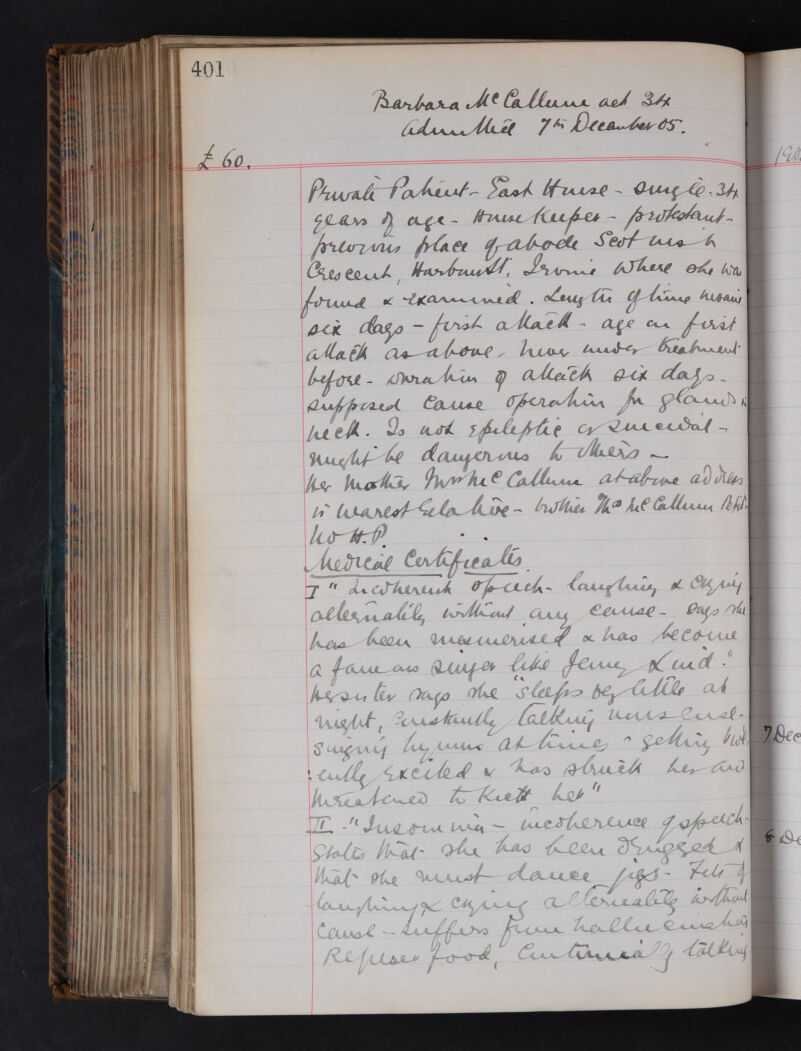 401
Barbara McCallum aet 34
Admitted 7th December 05.
£60.
190
Private Patient - East House - single. 34
years of age - Housekeeper - protestant -
previous place of abode Scot
Crescent, Harbour St, Irvine where she was
found & examined. Length of time insane
six days - first attack - age on first
attack as above - never under treatment
before - duration of attack six days -
supposed cause operation for glands in
neck. Is not epileptic or suicidal -
might be dangerous to others -
Her Mother Mrs McCallum at above address
is nearest relative - brother Thos McCallum Petit.
No H.P.
Medical Certificates
I "Incoherent speech - laughing & crying
alternately without any cause - says she
has been mesmerised & has become
a famous singer like Jenny Lind."
Her sister says she "sleeps very little at
night, constantly talking nonsense -
singing hymns at times - getting viol
:ently excited & has struck her and
threatened to kill her"
II - "Insomnia - incoherence of speech -
States that she has been drugged &
that she must dance jigs - Fits of
laughing & crying alternately without
cause - suffers from hallucinations
Refuses food, Continually talking
7 Dec
8 De